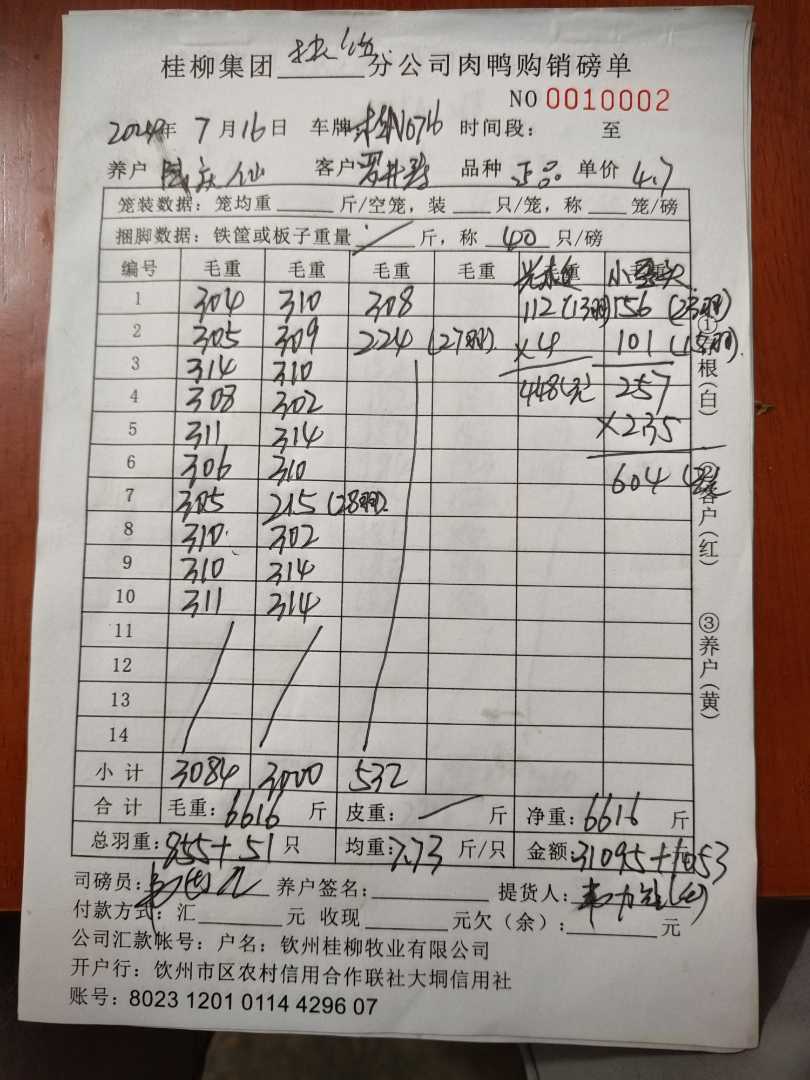 桂柳集团 分公司肉鸭购销磅单
NO 0010002
2024年 7月16日 车牌 N0676 时间段: 至
养户 庆仙 客户 罗 品种 正品 单价 4.7
笼装数据: 笼均重 斤/空笼, 装 只/笼, 称 笼/磅
捆脚数据: 铁筐或板子重量 / 斤, 称 40 只/磅
编号 毛重 毛重 毛重 毛重 毛重 小 毛重
1 304 310 308 112 (13羽) 156 (23羽)
2 305 309 224 (27羽) ×4 101 (15羽)
3 314 310 448(元) 257
4 308 302 ×2.35
5 311 314 604 (元)
6 306 310
7 305 215 (28羽)
8 310 302
9 310 314
10 311 314
11
12
13
14
小计 3084 3000 532
合计 毛重: 6616 斤 皮重: / 斤 净重: 6616 斤
总羽重: 855+51 只 均重: 7.73 斤/只 金额: 31095+1053
司磅员: 养户签名: 提货人:
付款方式: 汇 元 收现 元欠(余): 元
公司汇款帐号: 户名: 钦州桂柳牧业有限公司
开户行: 钦州市区农村信用合作联社大垌信用社
账号: 8023 1201 0114 4296 07
①存根(白)
②客户(红)
③养户(黄)